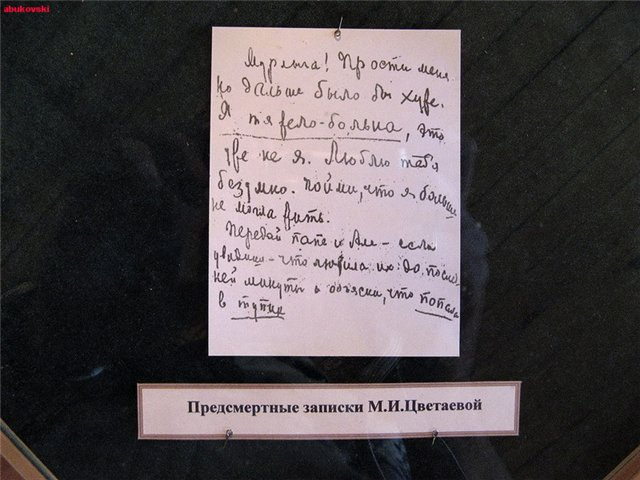 abukovski
Мурлыга! Прости меня
но дальше было бы хуже.
Я тяжело-больна, это
уже не я. Люблю тебя
безумно. Пойми, что я больше
не могла жить.
Передай папе и Але - если
увидишь - что любила их до послед
ней минуты и объясни, что попала
в тупик
Предсмертные записки М.И.Цветаевой